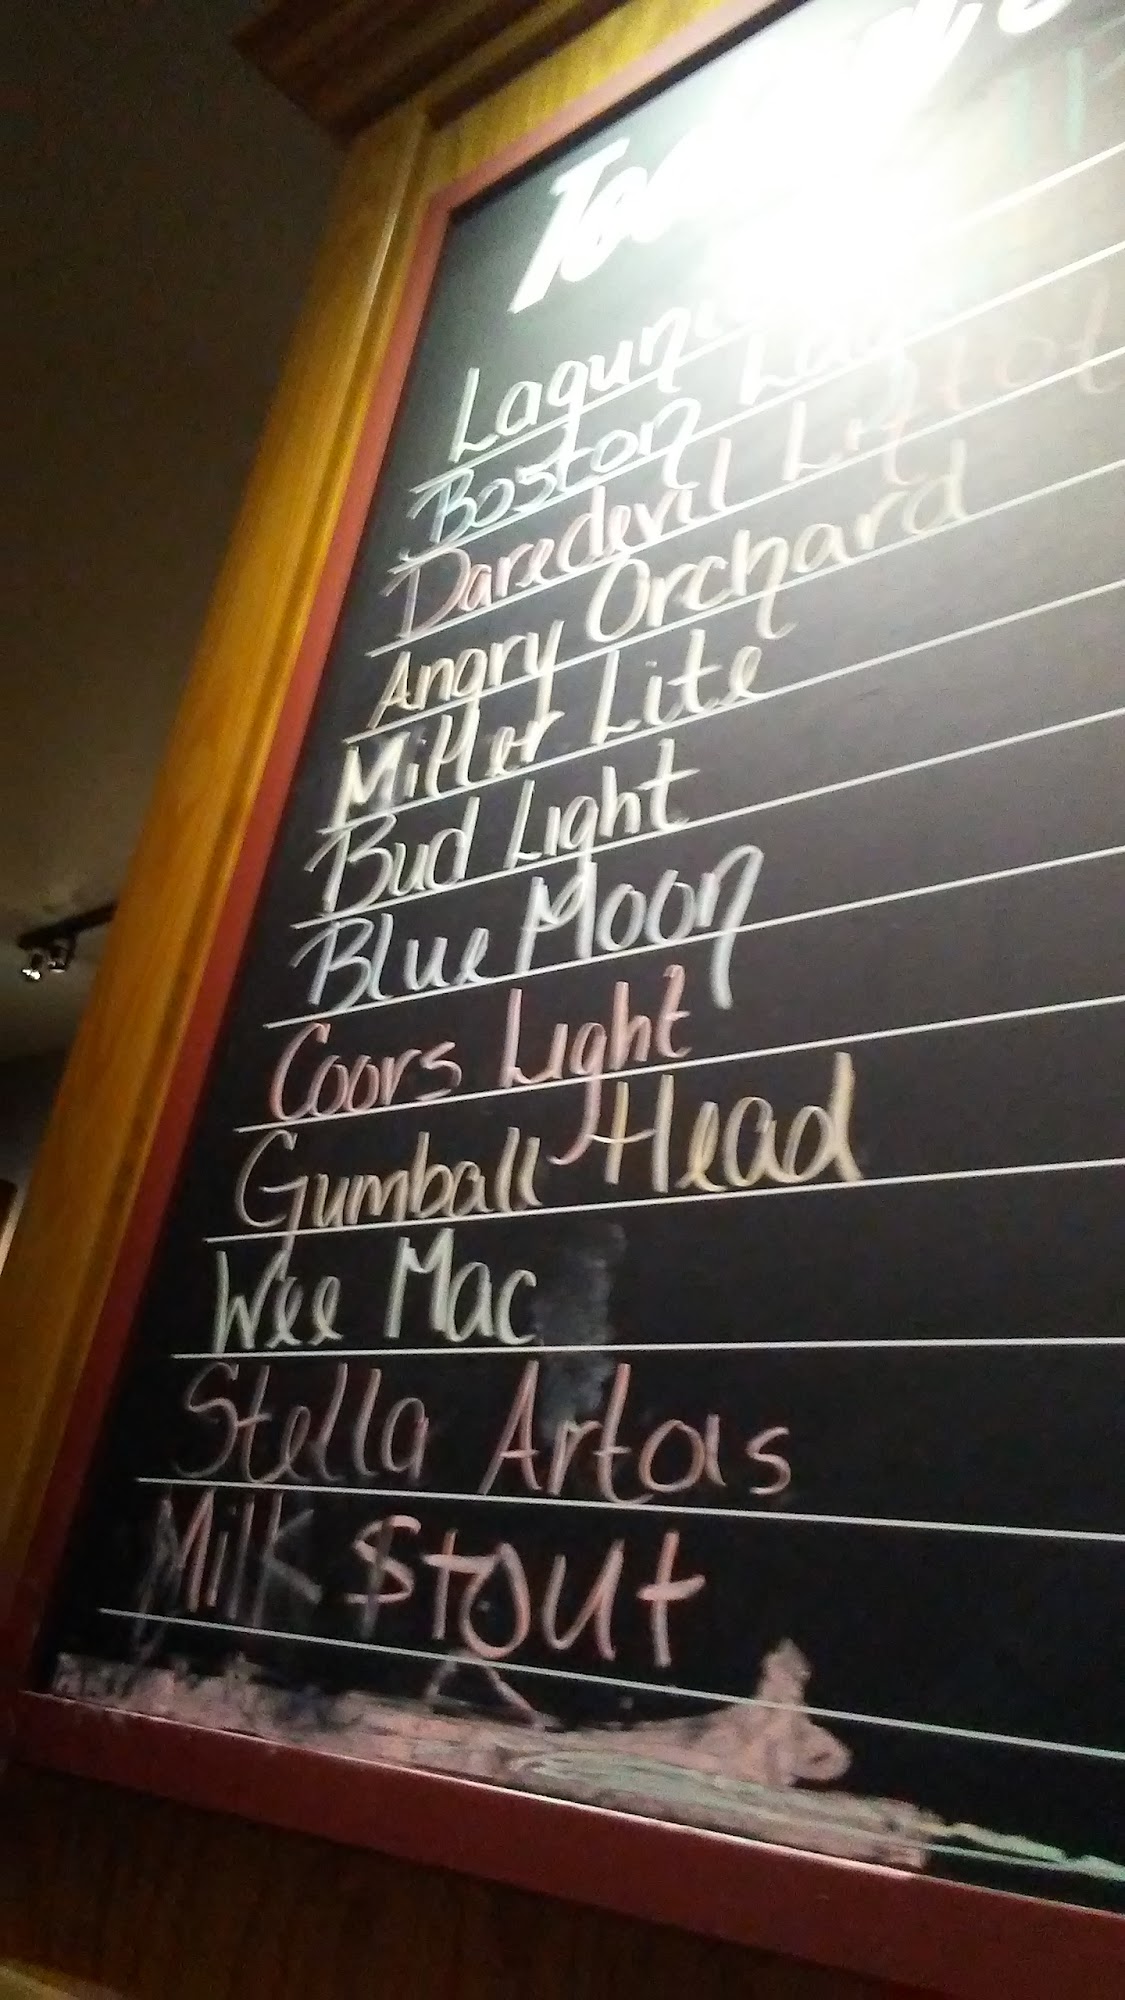 Boston
Daredevil
Angry Orchard
Miller Lite
Bud Light
Blue Moon
Coors Light
Gumball Head
Wee Mac
Stella Artois
Milk Stout